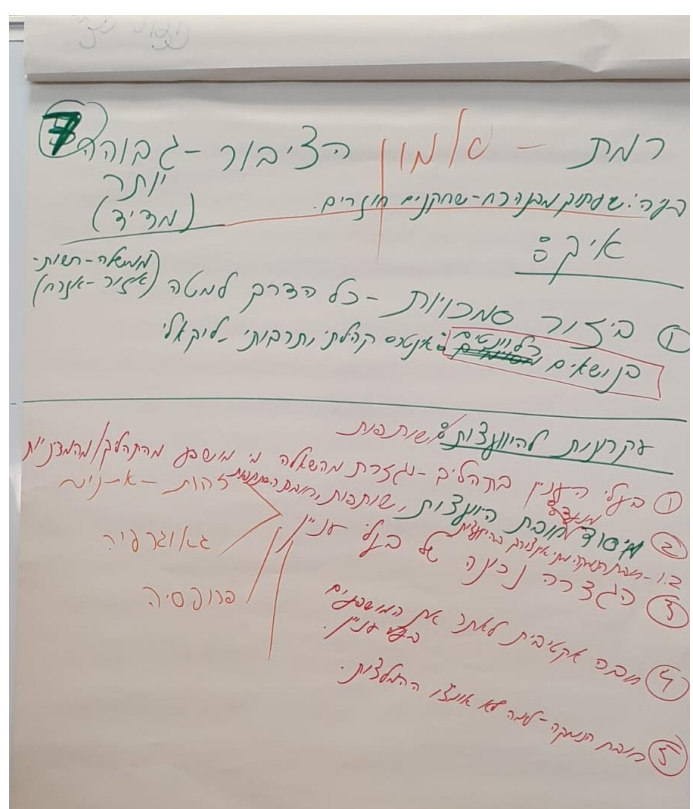 7
רמת - אמון הציבור - גבוהה
יותר
(מדיד)
בעיה: שעתוק מבנה כח - שחקנים חוזרים.
איך:
① ביזור סמכויות - כל הדרך למטה (ממשלה - רשות -
אזור - אזרח)
בנושאים רלוונטים: אינטרס קהילתי ותרבותי - לוקאלי
עקרונות להיוועצות: / שותפות
① בעלי העניין בתהליך - נגזרת מהשאלה מי מושפע מהתהליך/מהמדיניות
② מיסוד חובת היוועצות, שותפות,
③ הגדרה נכונה של בעלי עניין
זהות -
גאוגרפיה
פרופסיה
④ חובה אקטיבית לאתר את המושפעים
בעלי עניין.
⑤ חובת הנמקה - למה לא אומצו ההמלצות.